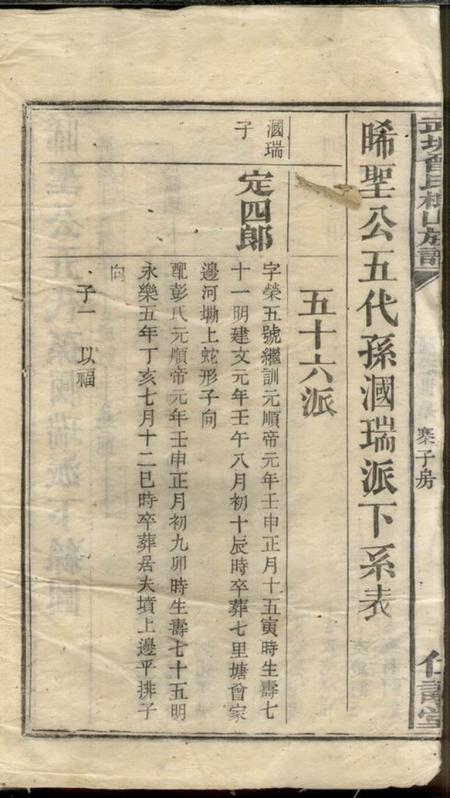 武城曾氏
族譜
寀子房
仁壽堂
晞聖公五代孫漍瑞派下系表
五十六派
漍瑞子
定四郎
字榮五號繼訓元順帝元年壬申正月十五寅時生壽七
十一明建文元年壬午八月初十辰時卒葬七里塘曾家
邊河塝上蛇形子向
配彭氏元順帝元年壬申正月初九卯時生壽七十五明
永樂五年丁亥七月十二巳時卒葬居夫墳上邊平排子
向
子一 以福